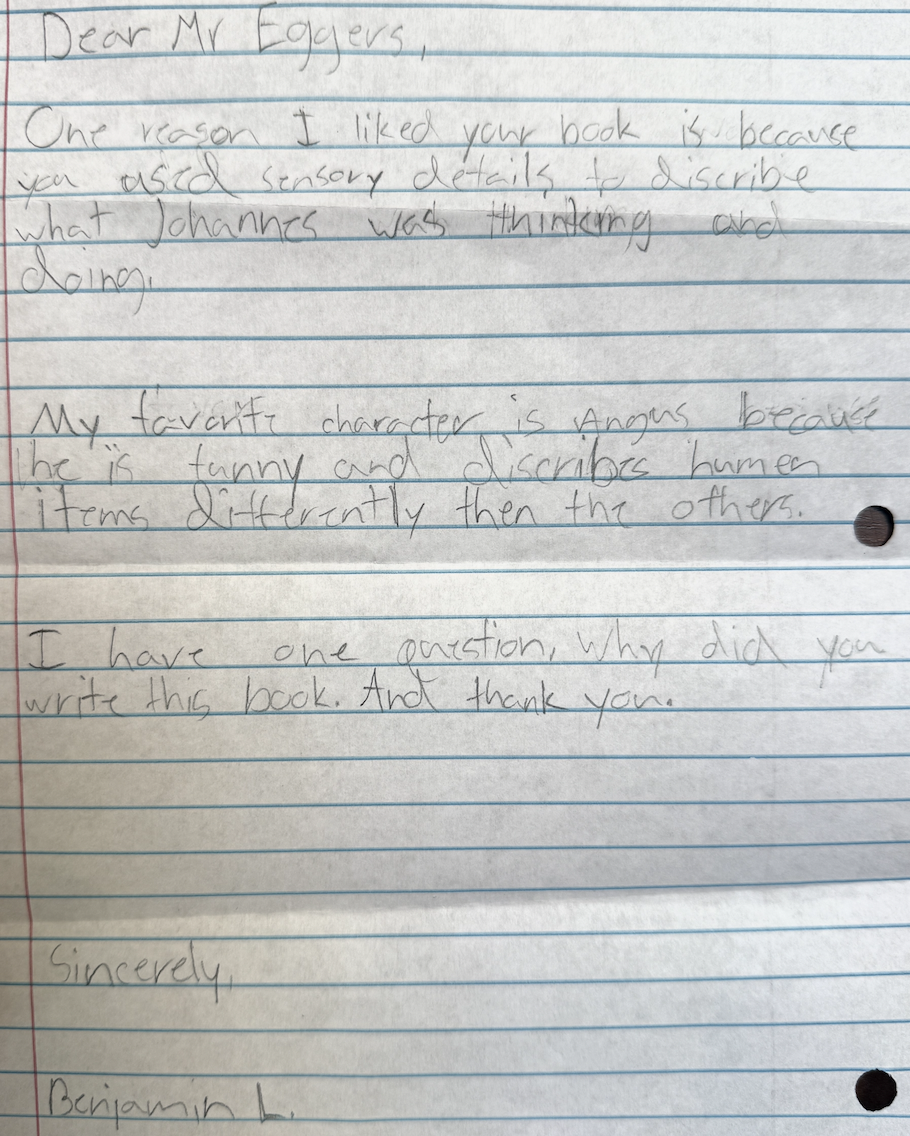 Dear Mr Eggers,
One reason I liked your book is because
you used sensory details to discribe
what Johannes was thinking and
doing.
My favorite character is Angus because
he is funny and discribes humen
items differently then the others.
I have one question, Why did you
write this book. And thank you.
Sincerely,
Benjamin L.